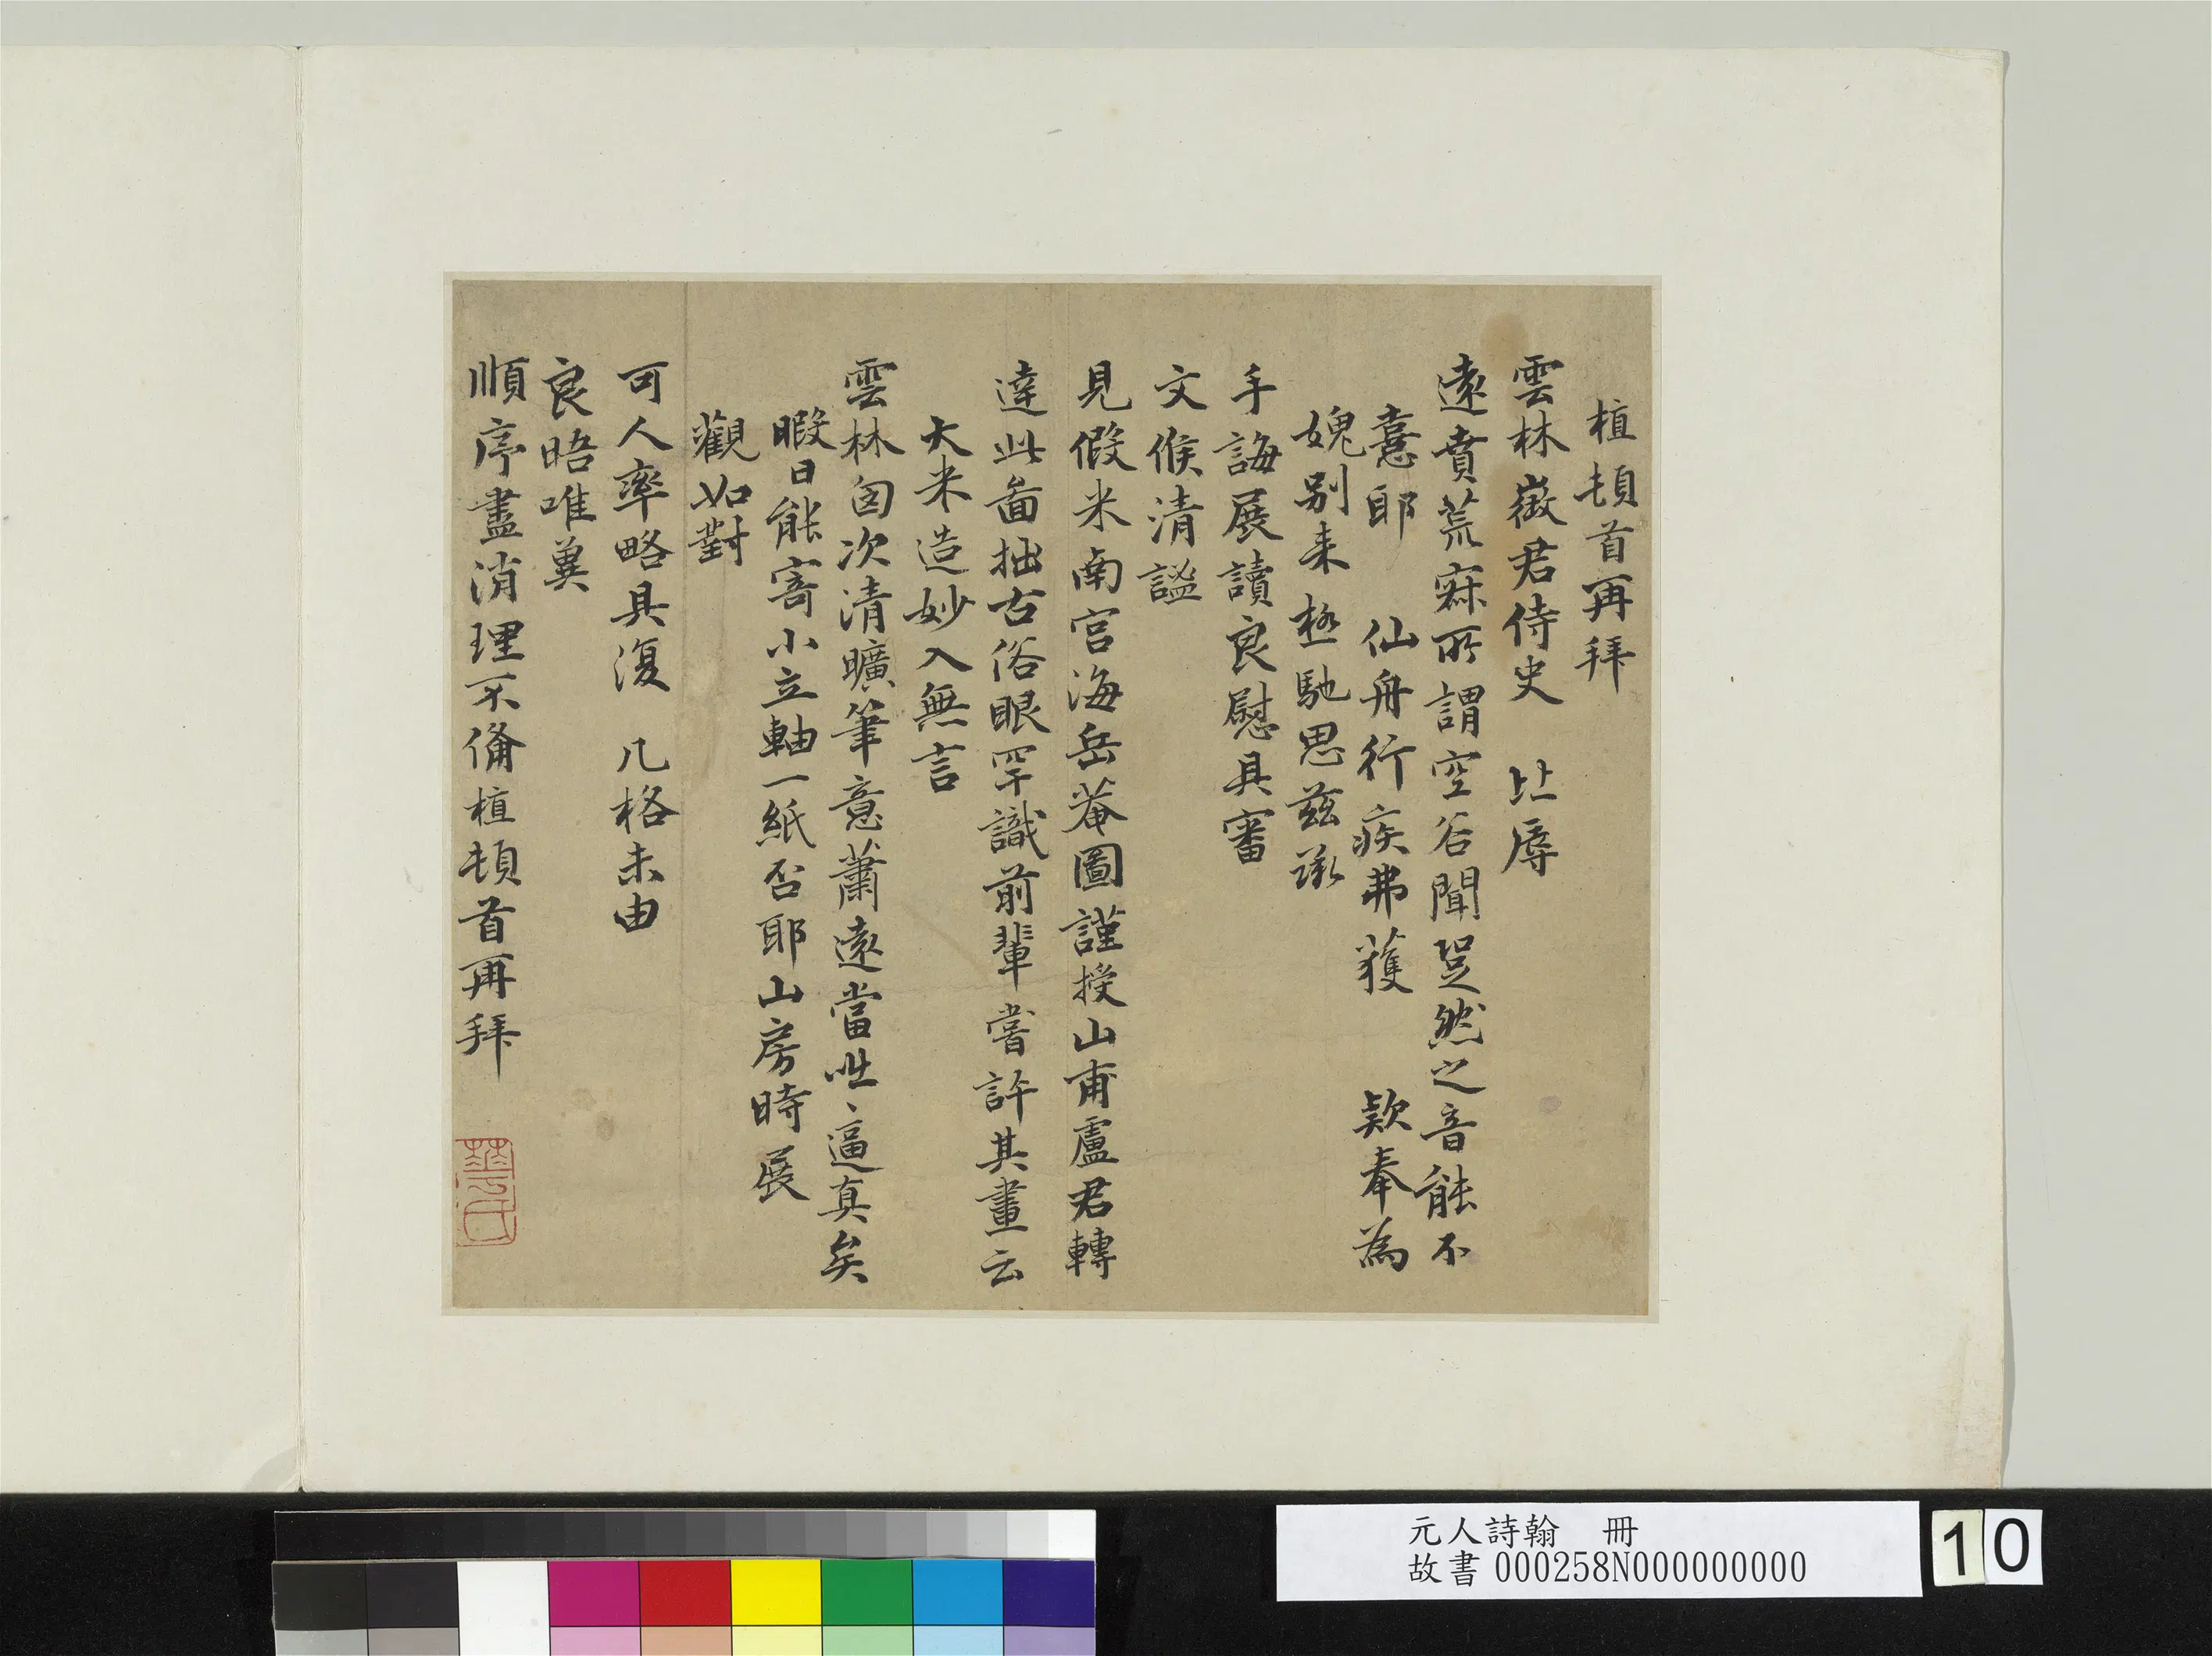 植頓首再拜
雲林徵君侍史　比辱
遠賁荒寐所謂空谷聞跫然之音能不
憙耶　仙舟行疾弗獲　欵奉為
媿別来極馳思茲承
手誨展讀良慰具審
文候清謐
見假米南宮海岳菴圖謹授山甫盧君轉
達此啚拙古俗眼罕識前輩嘗許其畫云
大米造妙入無言
雲林匈次清曠筆意蕭遠當咄ヽ逼真矣
暇日能寄小立軸一紙否耶山房時展
觀如對
可人率略具復　几格未由
良晤唯冀
順序盡消理不備植頓首再拜
華氏
元人詩翰　冊
故書000258N000000000
10